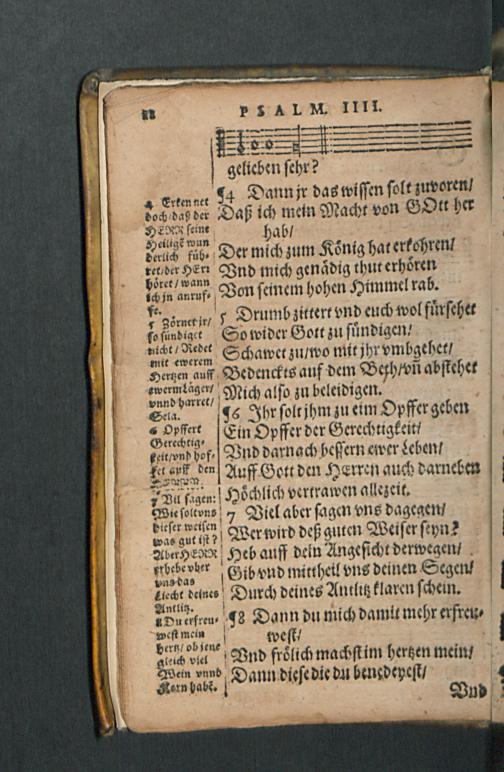 PSALM. IIII.
gelieben sehr?
¶4 Dann jr das wissen solt zuvoren/
Daß ich mein Macht von GOtt her
hab/
Der mich zum König hat erkohren/
Vnd mich genädig thut erhören
Von seinem hohen Himmel rab.
5 Drumb zittert vnd euch wol fürsehet
So wider Gott zu sündigen/
Schawet zu/wo mit jhr vmbgehet/
Bedenckts auf dem Beth/vñ abstehet
Mich also zu beleidigen.
¶6 Ihr solt jhm zu eim Opffer geben
Ein Opffer der Gerechtigkeit/
Vnd darnach bessern ewer Leben/
Auff Gott den HErren auch darneben
Höchlich vertrawen allezeit.
7 Viel aber sagen vns dagegen/
Wer wird deß guten Weiser seyn?
Heb auff dein Angesicht derwegen/
Gib vnd mittheil vns deinen Segen/
Durch deines Antlitz klaren schein.
¶8 Dann du mich damit mehr erfreu-
west/
Vnd frölich machst im hertzen mein/
Dann diese die du benedeyest/
Vnd
4 Erkennet
doch/daß der
HERR seine
Heiligē wun
derlich füh-
ret/der HErr
höret/wann
ich jn anruf-
fe.
5 Zörnet jr/
so sündiget
nicht/Redet
mit ewerem
Hertzen auff
ewerm Läger/
vnnd harret/
Sela.
6 Opffert
Gerechtig-
keit/vnd hof-
fet auff den
7 Vil sagen:
Wie solt vns
dieser weisen
was gut ist?
Aber HERR
erhebe vber
vns das
Liecht deines
Antlitz.
8 Du erfreu-
west mein
hertz/ob jene
gleich viel
Wein vnnd
Korn habē.